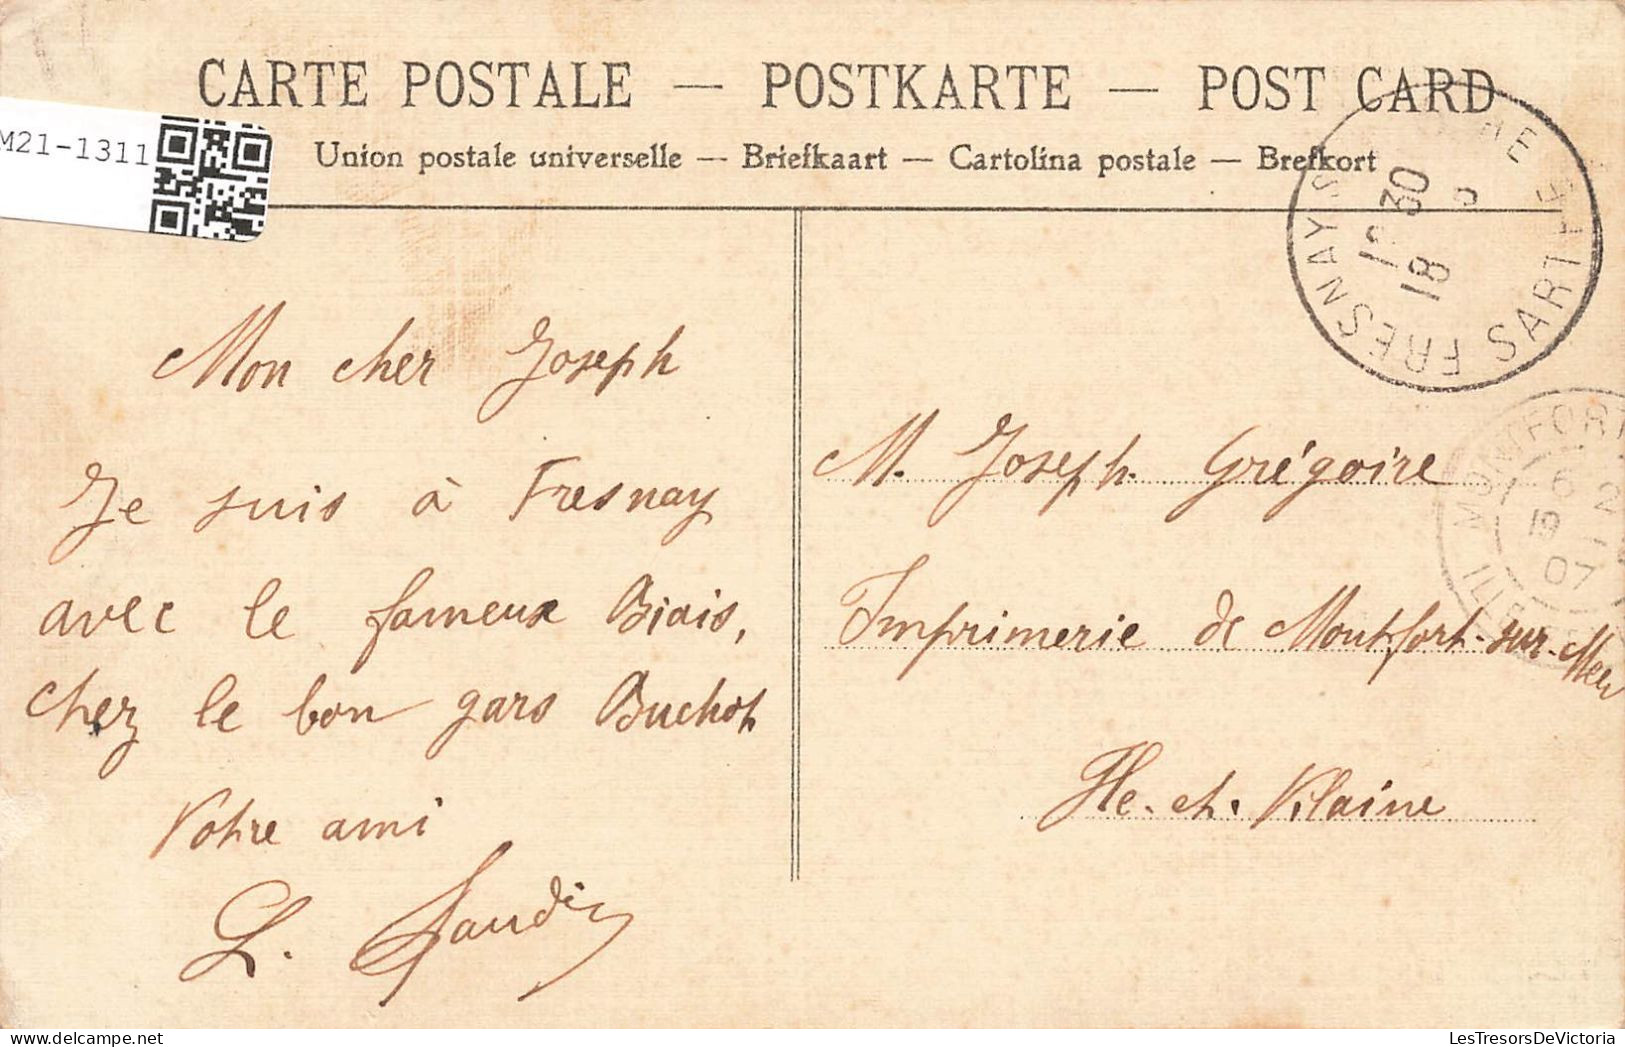 CARTE POSTALE — POSTKARTE — POST CARD
Union postale universelle — Briefkaart — Cartolina postale — Brefkort
M21-1311
FRESNAY S SARTHE
30
18
MONTFORT
6
19
07
Mon cher Joseph
Je suis à Fresnay
avec le fameux Biais,
chez le bon gars Buchot
Votre ami
L.
M. Joseph Grégoire
Imprimerie de Montfort-sur-Meu
Ile-et-Vilaine
LesTresorsDeVictoria